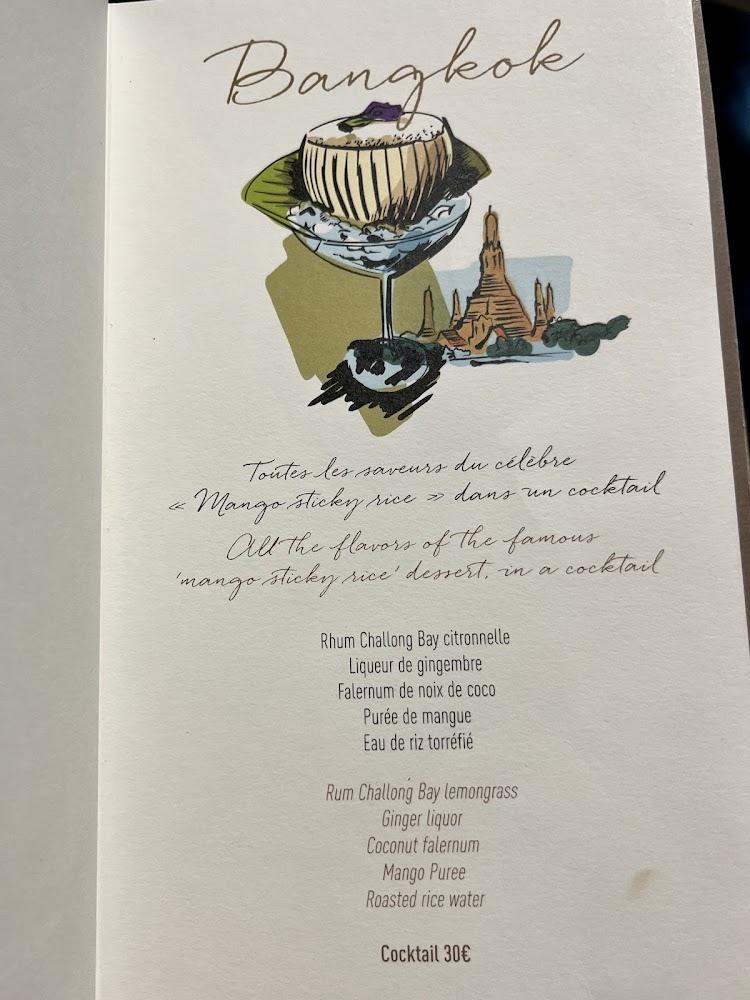 Bangkok
Toutes les saveurs du célèbre
« Mango sticky rice » dans un cocktail
All the flavors of the famous
'mango sticky rice' dessert, in a cocktail
Rhum Challong Bay citronnelle
Liqueur de gingembre
Falernum de noix de coco
Purée de mangue
Eau de riz torréfié
Rum Challong Bay lemongrass
Ginger liquor
Coconut falernum
Mango Puree
Roasted rice water
Cocktail 30€